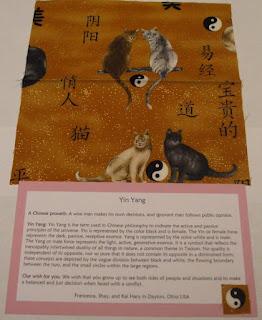 阴阳
易经
宝贵的
情人
道
猫
Yin Yang
A Chinese proverb: A wise man makes his own decisions, and ignorant man follows public opinion.
Yin Yang: Yin Yang is the term used in Chinese philosophy to indicate the active and passive
principles of the universe. Yin is represented by the color black and is female. The Yin or female force
represents the dark, passive, receptive essence. Yang is represented by the color white and is male.
The Yang or male force represents the light, active, generative essence. It is a symbol that reflects the
inescapably intertwined duality of all things in nature, a common theme in Taoism. No quality is
independent of its opposite, nor so pure that it does not contain its opposite in a diminished form;
these concepts are depicted by the vague division between black and white, the flowing boundary
between the two, and the small circles within the large regions.
Our wish for you: We wish that you grow up to see both sides of people and situations and to make
a balanced and just decision when faced with a conflict.
Francesca, Shay, and Kai Hary in Dayton, Ohio USA